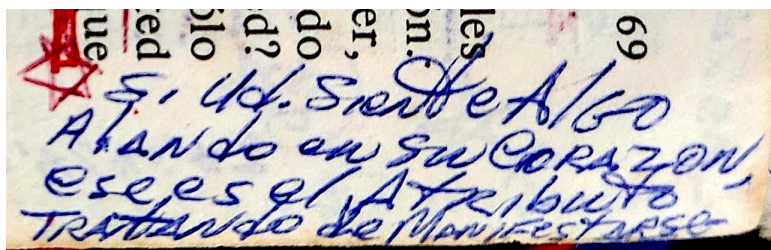 69
les
ón.
er,
do
d?
olo
ted
ue
Si Ud. Siente Algo
Alando en su Corazon,
ese es el Atributo
Tratando de Manifestarse